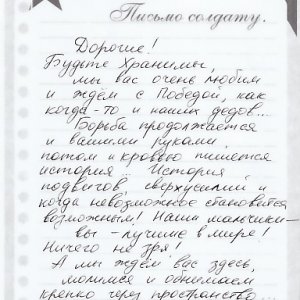 Письмо солдату.
Дорогие!
Будьте Хранимы,
мы вас очень любим
и ждём с Победой, как
когда-то и наших дедов...
Борьба продолжается
и вашими руками,
потом и кровью пишется
история... История
подвигов, сверхусилий и
когда невозможное становится
возможным! Наши мальчики-
вы - лучшие в мире!
Ничего не зря!
А мы ждём вас здесь,
молимся и обнимаем
крепко через пространство...